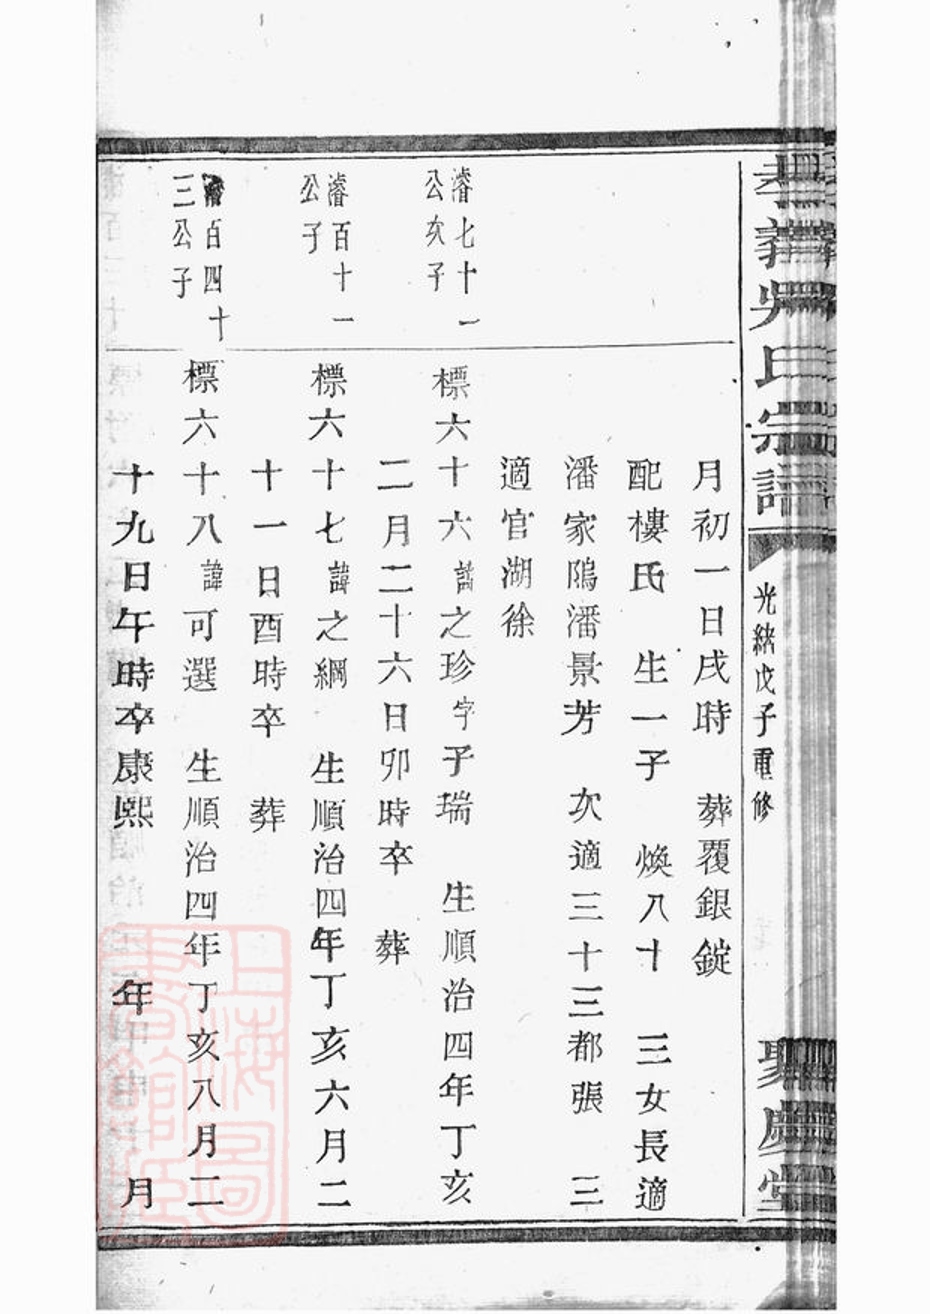 孝義吳氏宗譜
光緒戊子重修
聚慶堂
月初一日戌時 葬覆銀錠
配樓氏 生一子 煥八十 三女長適
潘家隖潘景芳 次適三十三都張 三
適官湖徐
濬七十一
公次子
標六十六諱之珍字子瑞 生順治四年丁亥
二月二十六日卯時卒 葬
濬百十一
公子
標六十七諱之綱 生順治四年丁亥六月二
十一日酉時卒 葬
濬百四十
三公子
標六十八諱可選 生順治四年丁亥八月二
十九日午時卒康熙 年 月
上海圖
書館藏